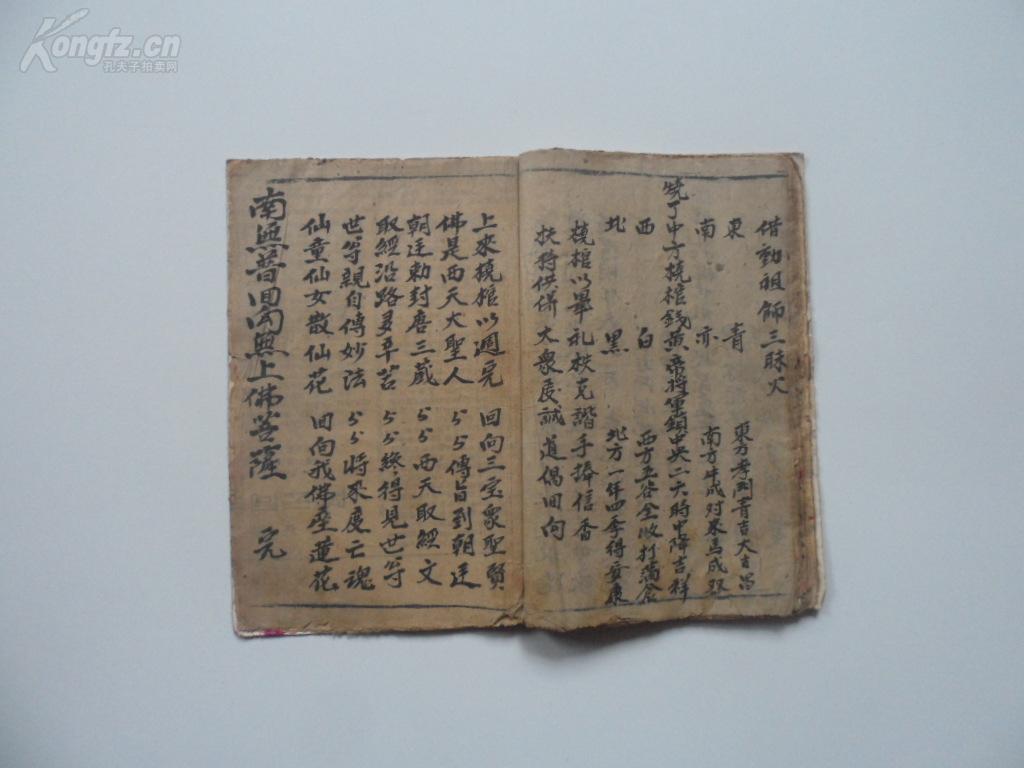 Kongfz.cn
孔夫子拍卖网
借動祖師三昧火
東 青 東方孝門青吉大吉昌
南 亦 南方牛成对來馬成双
燒了中方撓棺錢黄帝將軍鎖中央二六時中降吉祥
西 白 西方五谷全收打滿倉
北 黑 北方一年四季得安康
撓棺以畢礼秩克諧手捧信香
扶狩供併大衆虔誠道偈回向
上來撓棺以週完 回向三宝衆聖賢
佛是西天大聖人 〃〃傳旨到朝廷
朝廷勅封唐三藏 〃〃西天取經文
取經沿路多辛苦 〃〃終得見世尊
世尊親自傳妙法 〃〃將來度亡魂
仙童仙女散仙花 回向我佛座蓮花
南無普回向無上佛菩薩 完